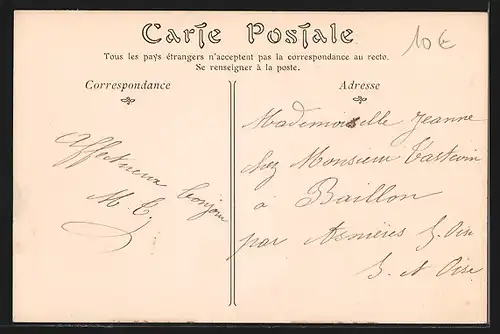 Carte Postale
10 €
Tous les pays étrangers n'acceptent pas la correspondance au recto.
Se renseigner à la poste.
Correspondance
Affectueux bonjour
M. C.
Adresse
Mademoiselle Jeanne
chez Monsieur Tastevin
à Baillon
par Asnières S. Oise
S. et Oise